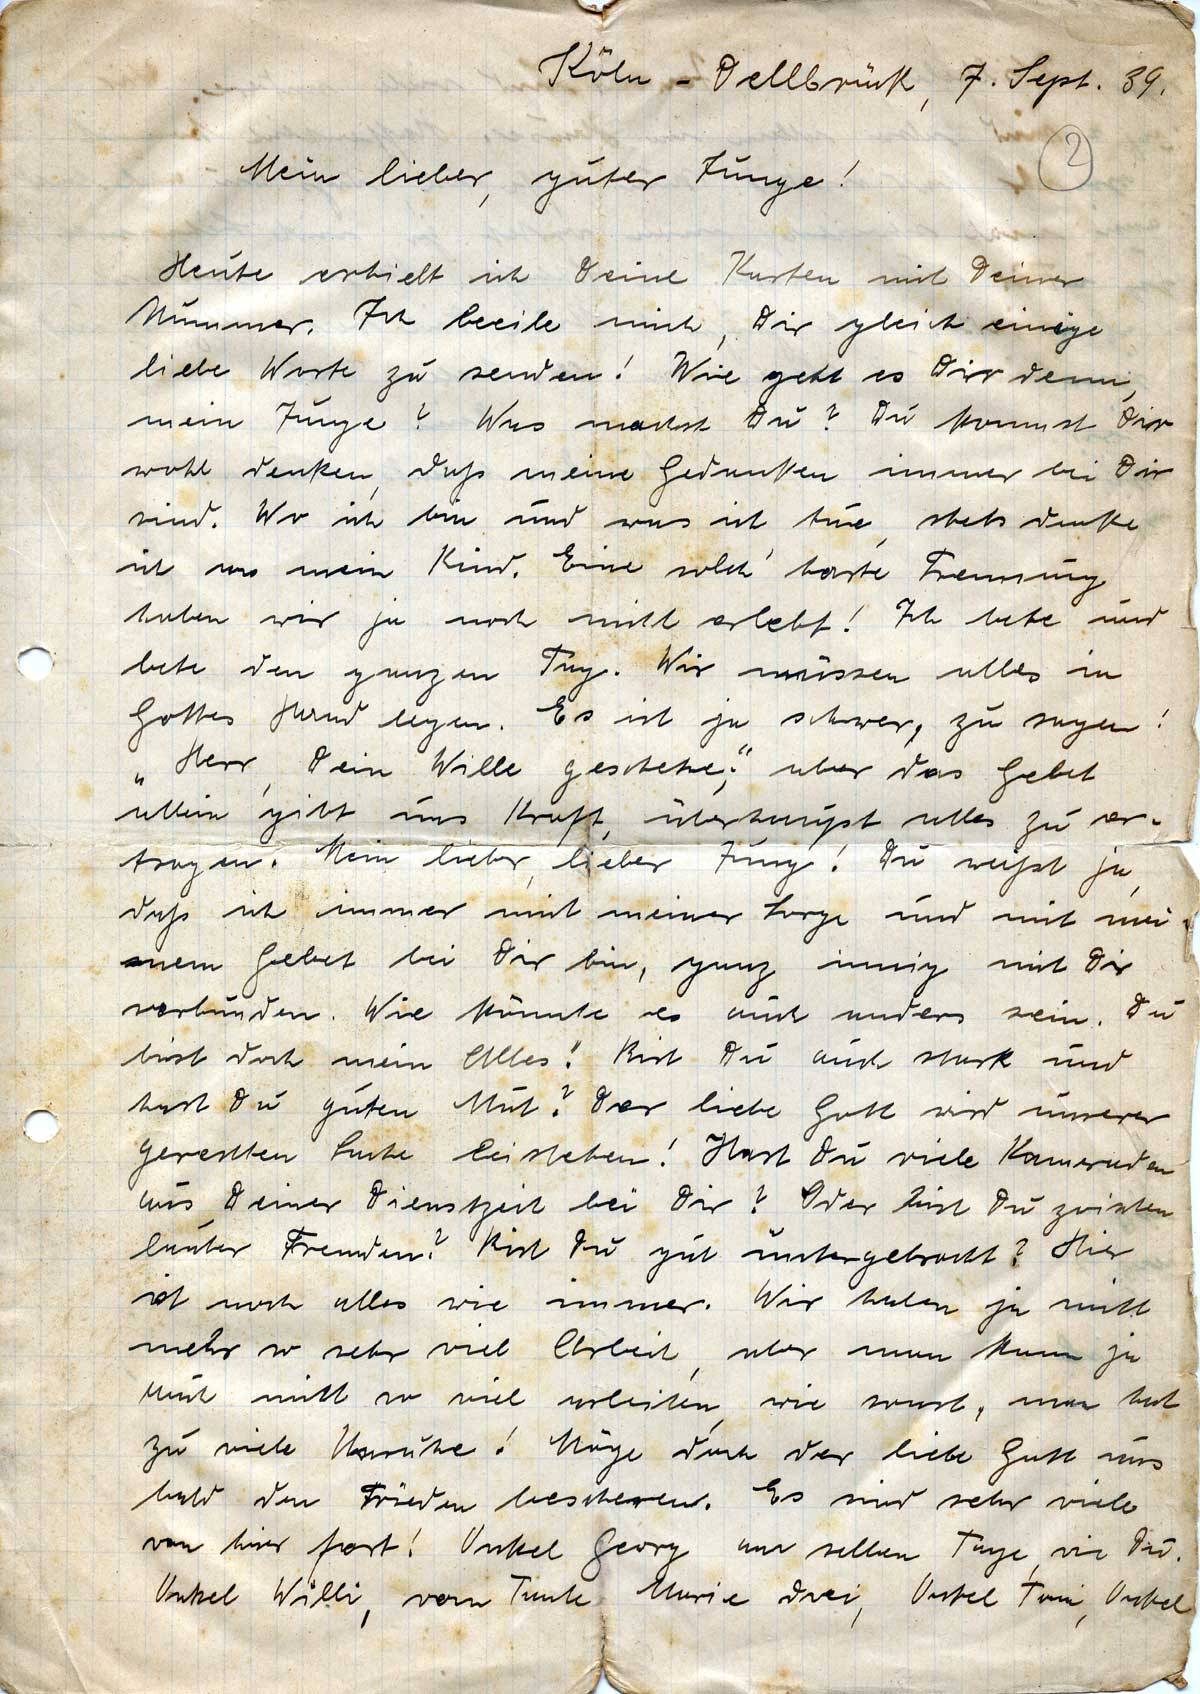 Köln - Dellbrück, 7. Sept. 39.
2
Mein lieber, guter Junge!
Heute erhielt ich Deine Karten mit Deiner
Nummer. Ich beeile mich, Dir gleich einige
liebe Worte zu senden! Wie geht es Dir denn,
mein Junge? Was machst Du? Du kannst Dir
wohl denken, daß meine Gedanken immer bei Dir
sind. Wo ich bin und was ich tue, stets denke
ich an mein Kind. Eine solch' harte Trennung
haben wir ja noch nicht erlebt! Ich bete und
bete den ganzen Tag. Wir müssen alles in
Gottes Hand legen. Es ist ja schwer, zu sagen!
„Herr, Dein Wille geschehe," aber das Gebet
allein gibt uns Kraft, überhaupt alles zu er-
tragen. Mein lieber, lieber Jung! Du weißt ja,
daß ich immer mit meiner Sorge und mit mei-
nem Gebet bei Dir bin, ganz innig mit Dir
verbunden. Wie könnte es auch anders sein. Du
bist doch mein Alles! Bist Du auch stark und
hast Du guten Mut? Der liebe Gott wird unserer
gerechten Sache beistehen! Hast Du viele Kameraden
aus Deiner Dienstzeit bei Dir? Oder bist Du zwischen
lauter Fremden? Bist Du gut untergebracht? Hier
ist noch alles wie immer. Wir haben ja nicht
mehr so sehr viel Arbeit, aber man kann ja
auch nicht so viel arbeiten, wie sonst, man hat
zu viele Unruhe! Möge doch der liebe Gott uns
bald den Frieden bescheren. Es sind sehr viele
von hier fort! Onkel Georg am selben Tage, wie Du.
Onkel Willi, von Tante Marie drei, Onkel Toni, Onkel